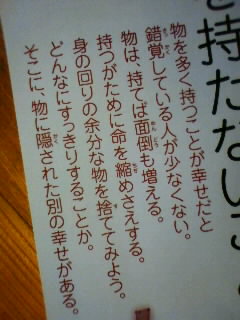 を持たないこと
物を多く持つことが幸せだと
錯覚している人が少なくない。
物は、持てば面倒も増える。
持つがために命を縮めさえする。
身の回りの余分な物を捨ててみよう。
どんなにすっきりすることか。
そこに、物に隠された別の幸せがある。